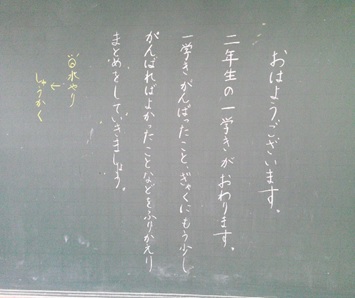 おはようございます。
二年生の一学きがおわります。
一学きがんばったこと、ぎゃくにもう少し
がんばればよかったことなどをふりかえり
まとめをしていきましょう。
水やり
↓
しゅうかく